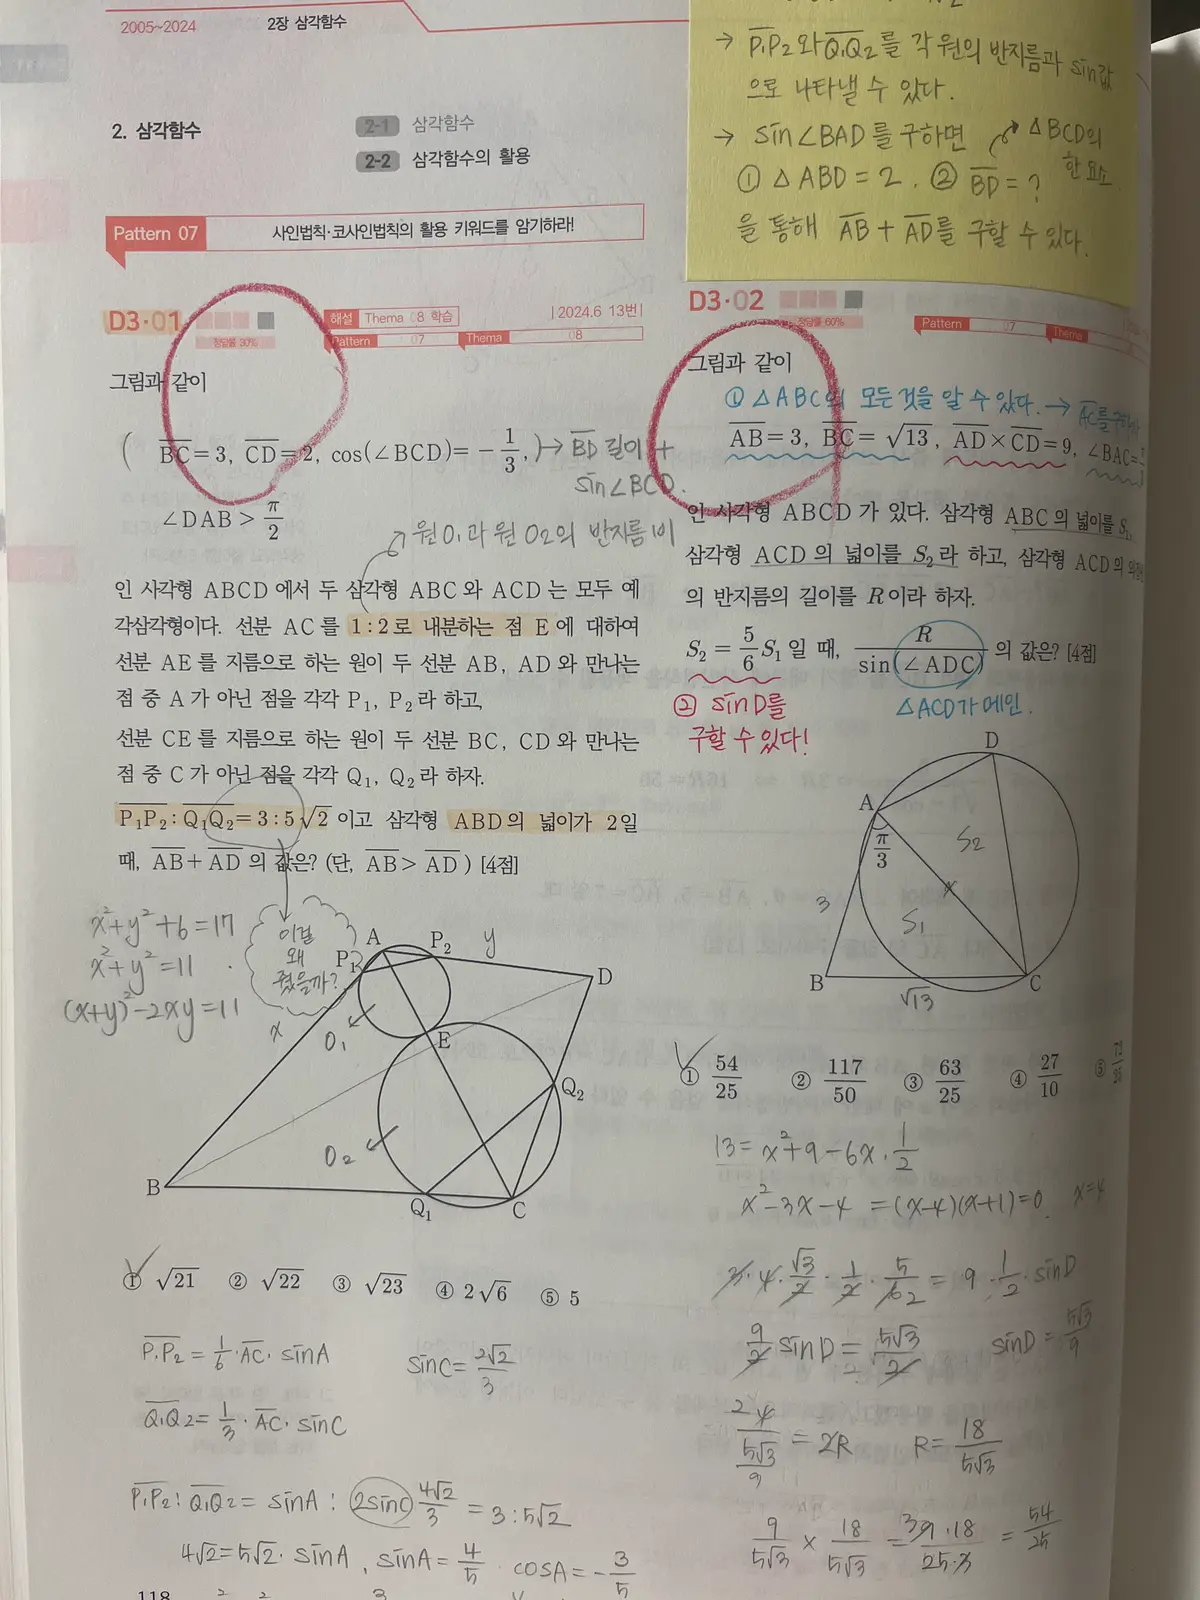 2005~2024
2장 삼각함수
2. 삼각함수
2-1 삼각함수
2-2 삼각함수의 활용
Pattern 07 사인법칙·코사인법칙의 활용 키워드를 암기하라!
D3·01
정답률 30%
해설 Thema 08 학습
| 2024.6 13번 |
Pattern 07 Thema 08
그림과 같이
( BC=3, CD=2, cos(∠BCD)=-1/3, ) → BD 길이 +
sin∠BCD.
∠DAB > π/2
원O₁과 원O₂의 반지름 비
인 사각형 ABCD 에서 두 삼각형 ABC 와 ACD 는 모두 예
각삼각형이다. 선분 AC 를 1:2로 내분하는 점 E 에 대하여
선분 AE 를 지름으로 하는 원이 두 선분 AB, AD 와 만나는
점 중 A 가 아닌 점을 각각 P₁, P₂ 라 하고,
선분 CE 를 지름으로 하는 원이 두 선분 BC, CD 와 만나는
점 중 C 가 아닌 점을 각각 Q₁, Q₂ 라 하자.
P₁P₂ : Q₁Q₂ = 3 : 5√2 이고 삼각형 ABD 의 넓이가 2일
때, AB + AD 의 값은? (단, AB > AD ) [4점]
x²+y²+6=17
x²+y²=11
(x+y)²-2xy=11
이걸
왜
줬을까?
A P₂ y
P₁
D
x
O₁
E
Q₂
O₂
B
Q₁ C
① √21 ② √22 ③ √23 ④ 2√6 ⑤ 5
P₁P₂ = 1/6 · AC · sinA
sinC = 2√2/3
Q₁Q₂ = 1/3 · AC · sinC
P₁P₂ : Q₁Q₂ = sinA : 2sinC 4√2/3 = 3 : 5√2
4√2 = 5√2 · sinA , sinA = 4/5 · cosA = -3/5
118
→ P₁P₂와 Q₁Q₂를 각 원의 반지름과 sin값
으로 나타낼 수 있다.
→ sin∠BAD를 구하면 △BCD의
한 요소.
① △ABD = 2 . ② BD = ?
을 통해 AB + AD를 구할 수 있다.
D3·02
정답률 60%
Pattern 07 Thema
그림과 같이
① △ABC의 모든 것을 알 수 있다. → AC를
AB=3, BC=√13, AD×CD=9, ∠BAC=π/3
인 사각형 ABCD 가 있다. 삼각형 ABC 의 넓이를 S₁,
삼각형 ACD 의 넓이를 S₂ 라 하고, 삼각형 ACD 의
의 반지름의 길이를 R 이라 하자.
S₂ = 5/6 S₁ 일 때, R/sin(∠ADC) 의 값은? [4점]
② sinD를
구할 수 있다!
△ACD가 메인.
D
A
π/3
S₂
x
3
S₁
B
C
√13
① 54/25 ② 117/50 ③ 63/25 ④ 27/10 ⑤
13 = x²+9-6x·1/2
x²-3x-4 = (x-4)(x+1)=0 x=4
3·4·√3/2·1/2·5/6 2 = 9·1/2·sinD
9/2 sinD = 5√3/2 sinD = 5√3/9
2 4/(5√3/9) = 2R R = 18/5√3
9/5√3 × 18/5√3 = 3 9·18/25·3 = 54/25